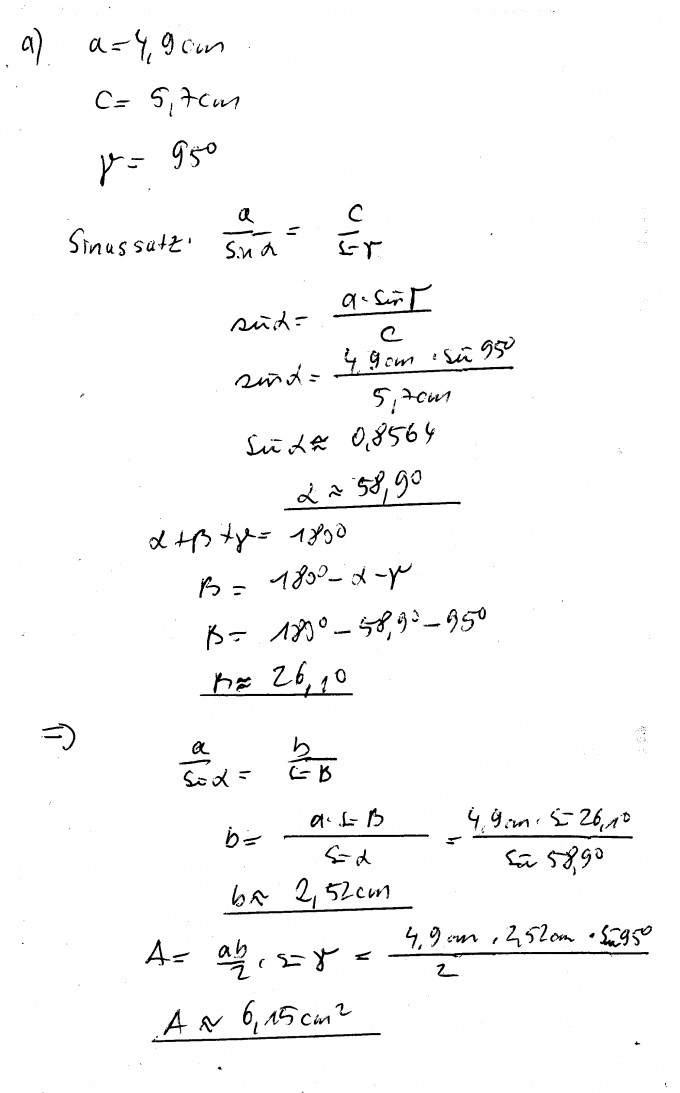 a) a = 4,9 cm
c = 5,7 cm
γ = 95°
Sinussatz: a/sin α = c/sin γ
sin α = a · sin γ / c
sin α = 4,9 cm · sin 95° / 5,7 cm
sin α ≈ 0,8564
α ≈ 58,9°
α + β + γ = 180°
β = 180° - α - γ
β = 180° - 58,9° - 95°
β ≈ 26,1°
⇒ a/sin α = b/sin β
b = a · sin β / sin α = 4,9 cm · sin 26,1° / sin 58,9°
b ≈ 2,52 cm
A = ab/2 · sin γ = 4,9 cm · 2,52 cm · sin 95° / 2
A ≈ 6,15 cm²